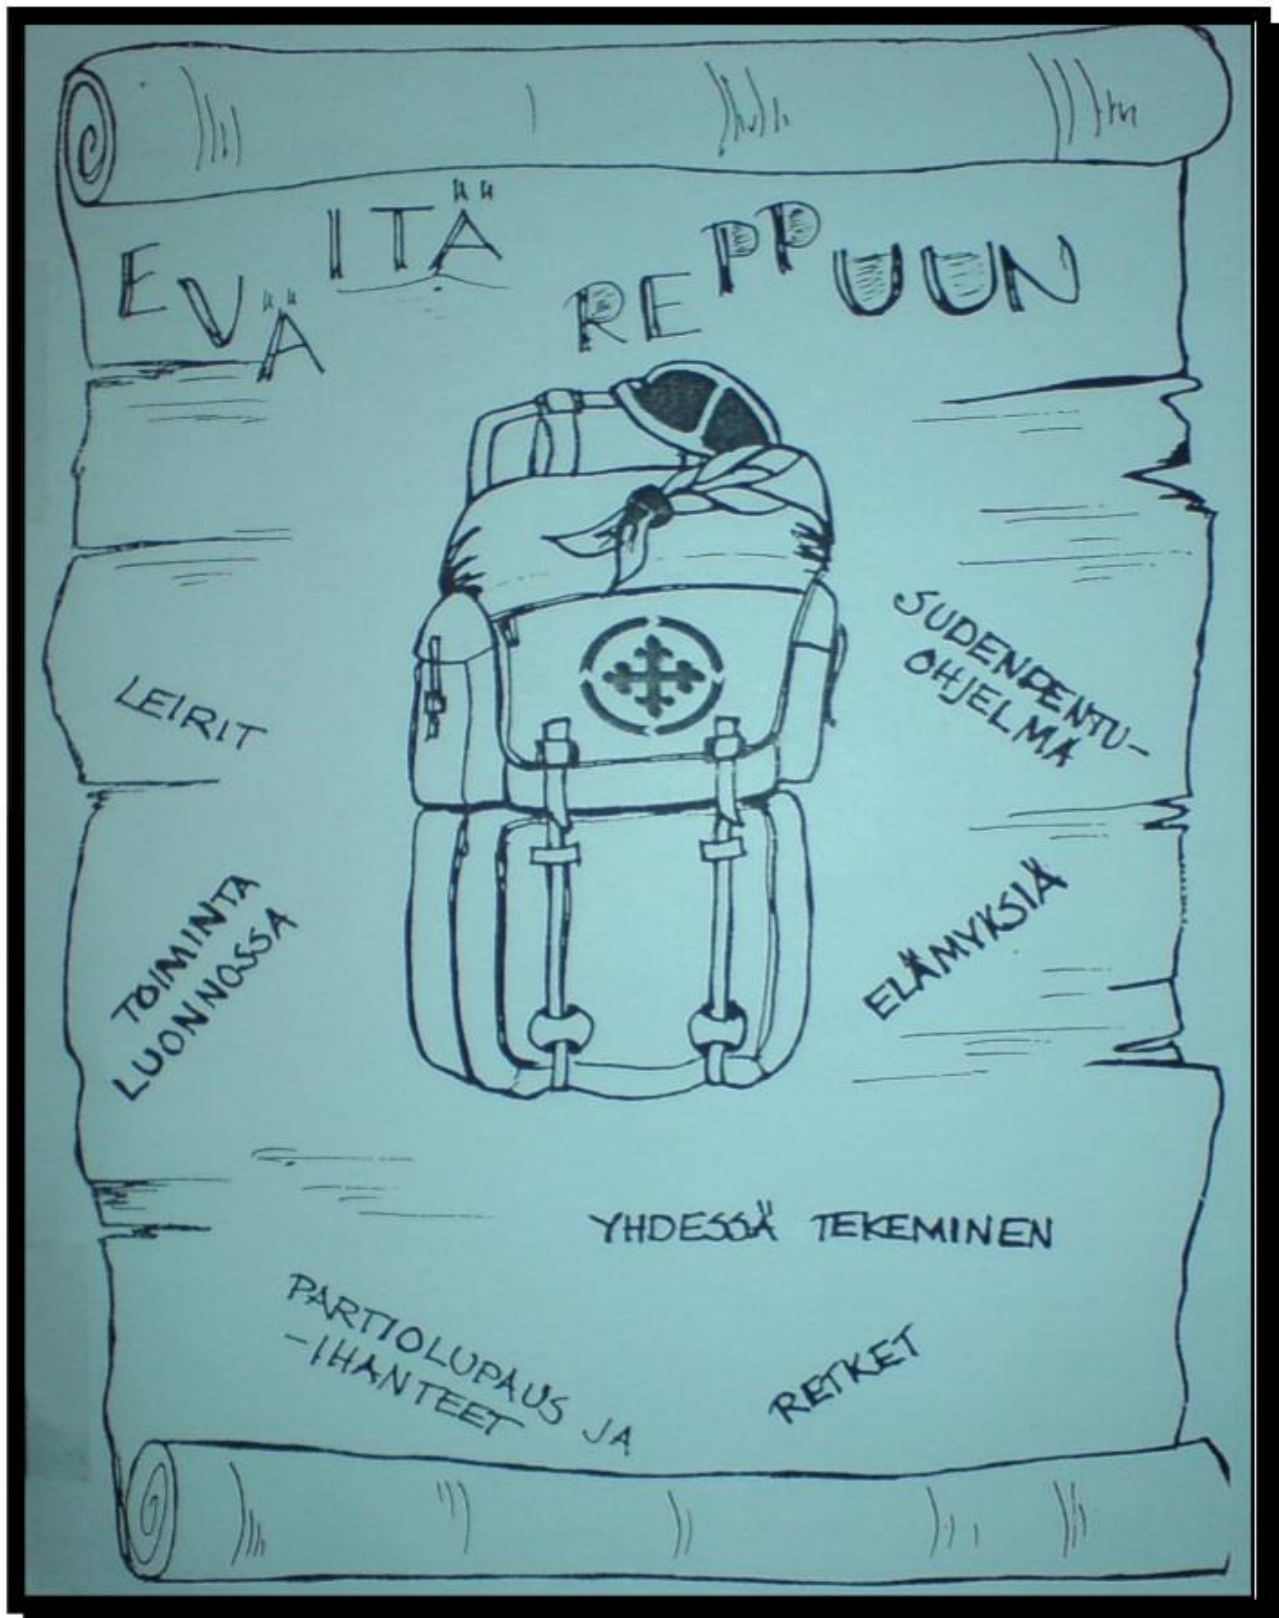 EVÄITÄ REPPUUN
LEIRIT
SUDENPENTU-
OHJELMA
TOIMINTA
LUONNOSSA
ELÄMYKSIÄ
YHDESSÄ TEKEMINEN
PARTIOLUPAUS JA
-IHANTEET
RETKET